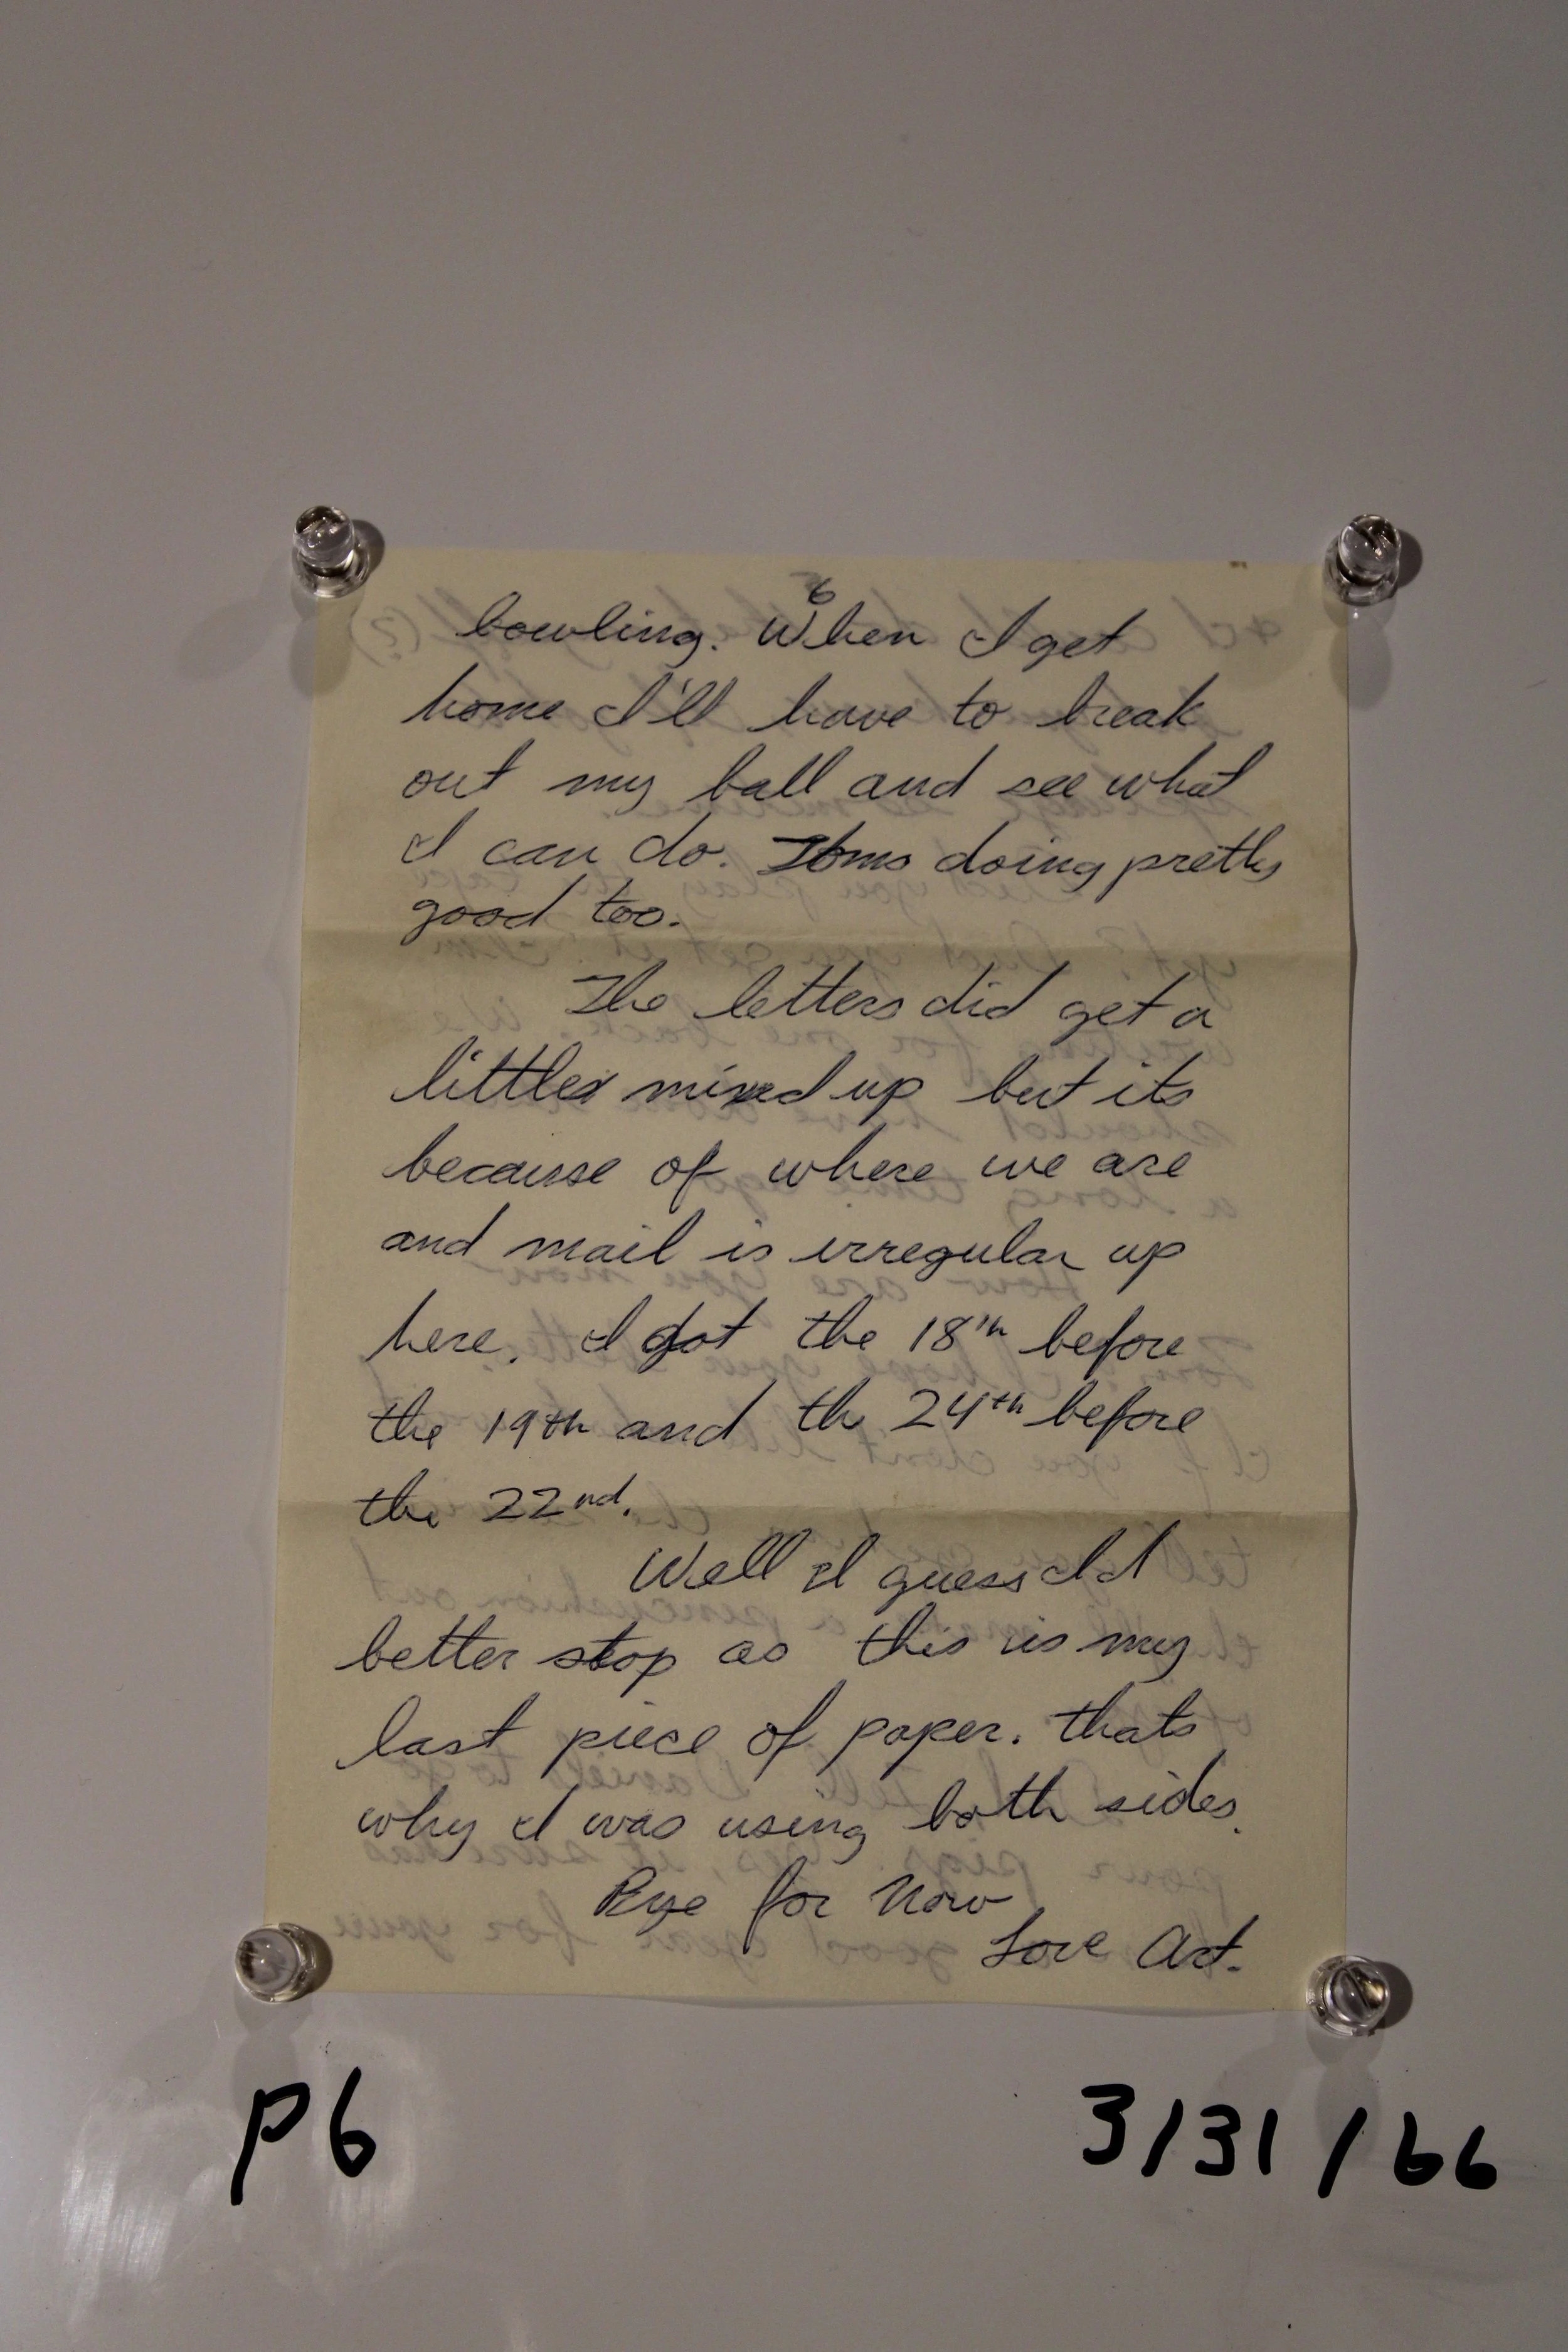 6
bowling. When I get
home I'll have to break
out my ball and see what
I can do. Toms doing pretty
good too.
The letters did get a
little mixed up but its
because of where we are
and mail is irregular up
here. I got the 18th before
the 19th and th 24th before
the 22nd.
Well I guess I'd
better stop as this is my
last piece of paper. thats
why I was using both sides.
Bye for now
Love Art.
P6
3/31/66